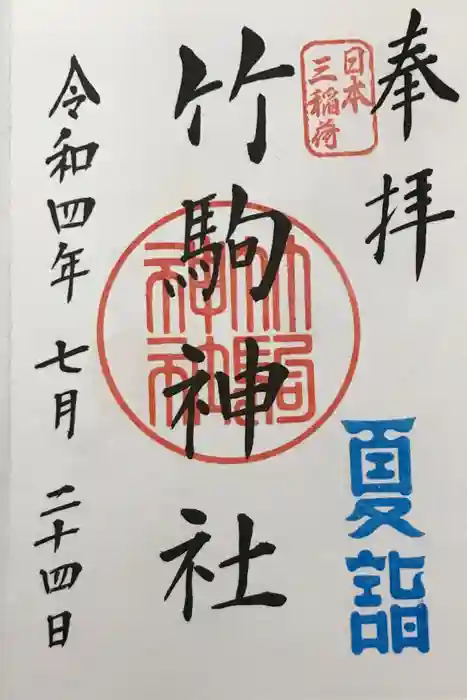 奉拝
日本
三稲荷
夏詣
竹駒神社
竹駒
神社
令和四年 七月 二十四日